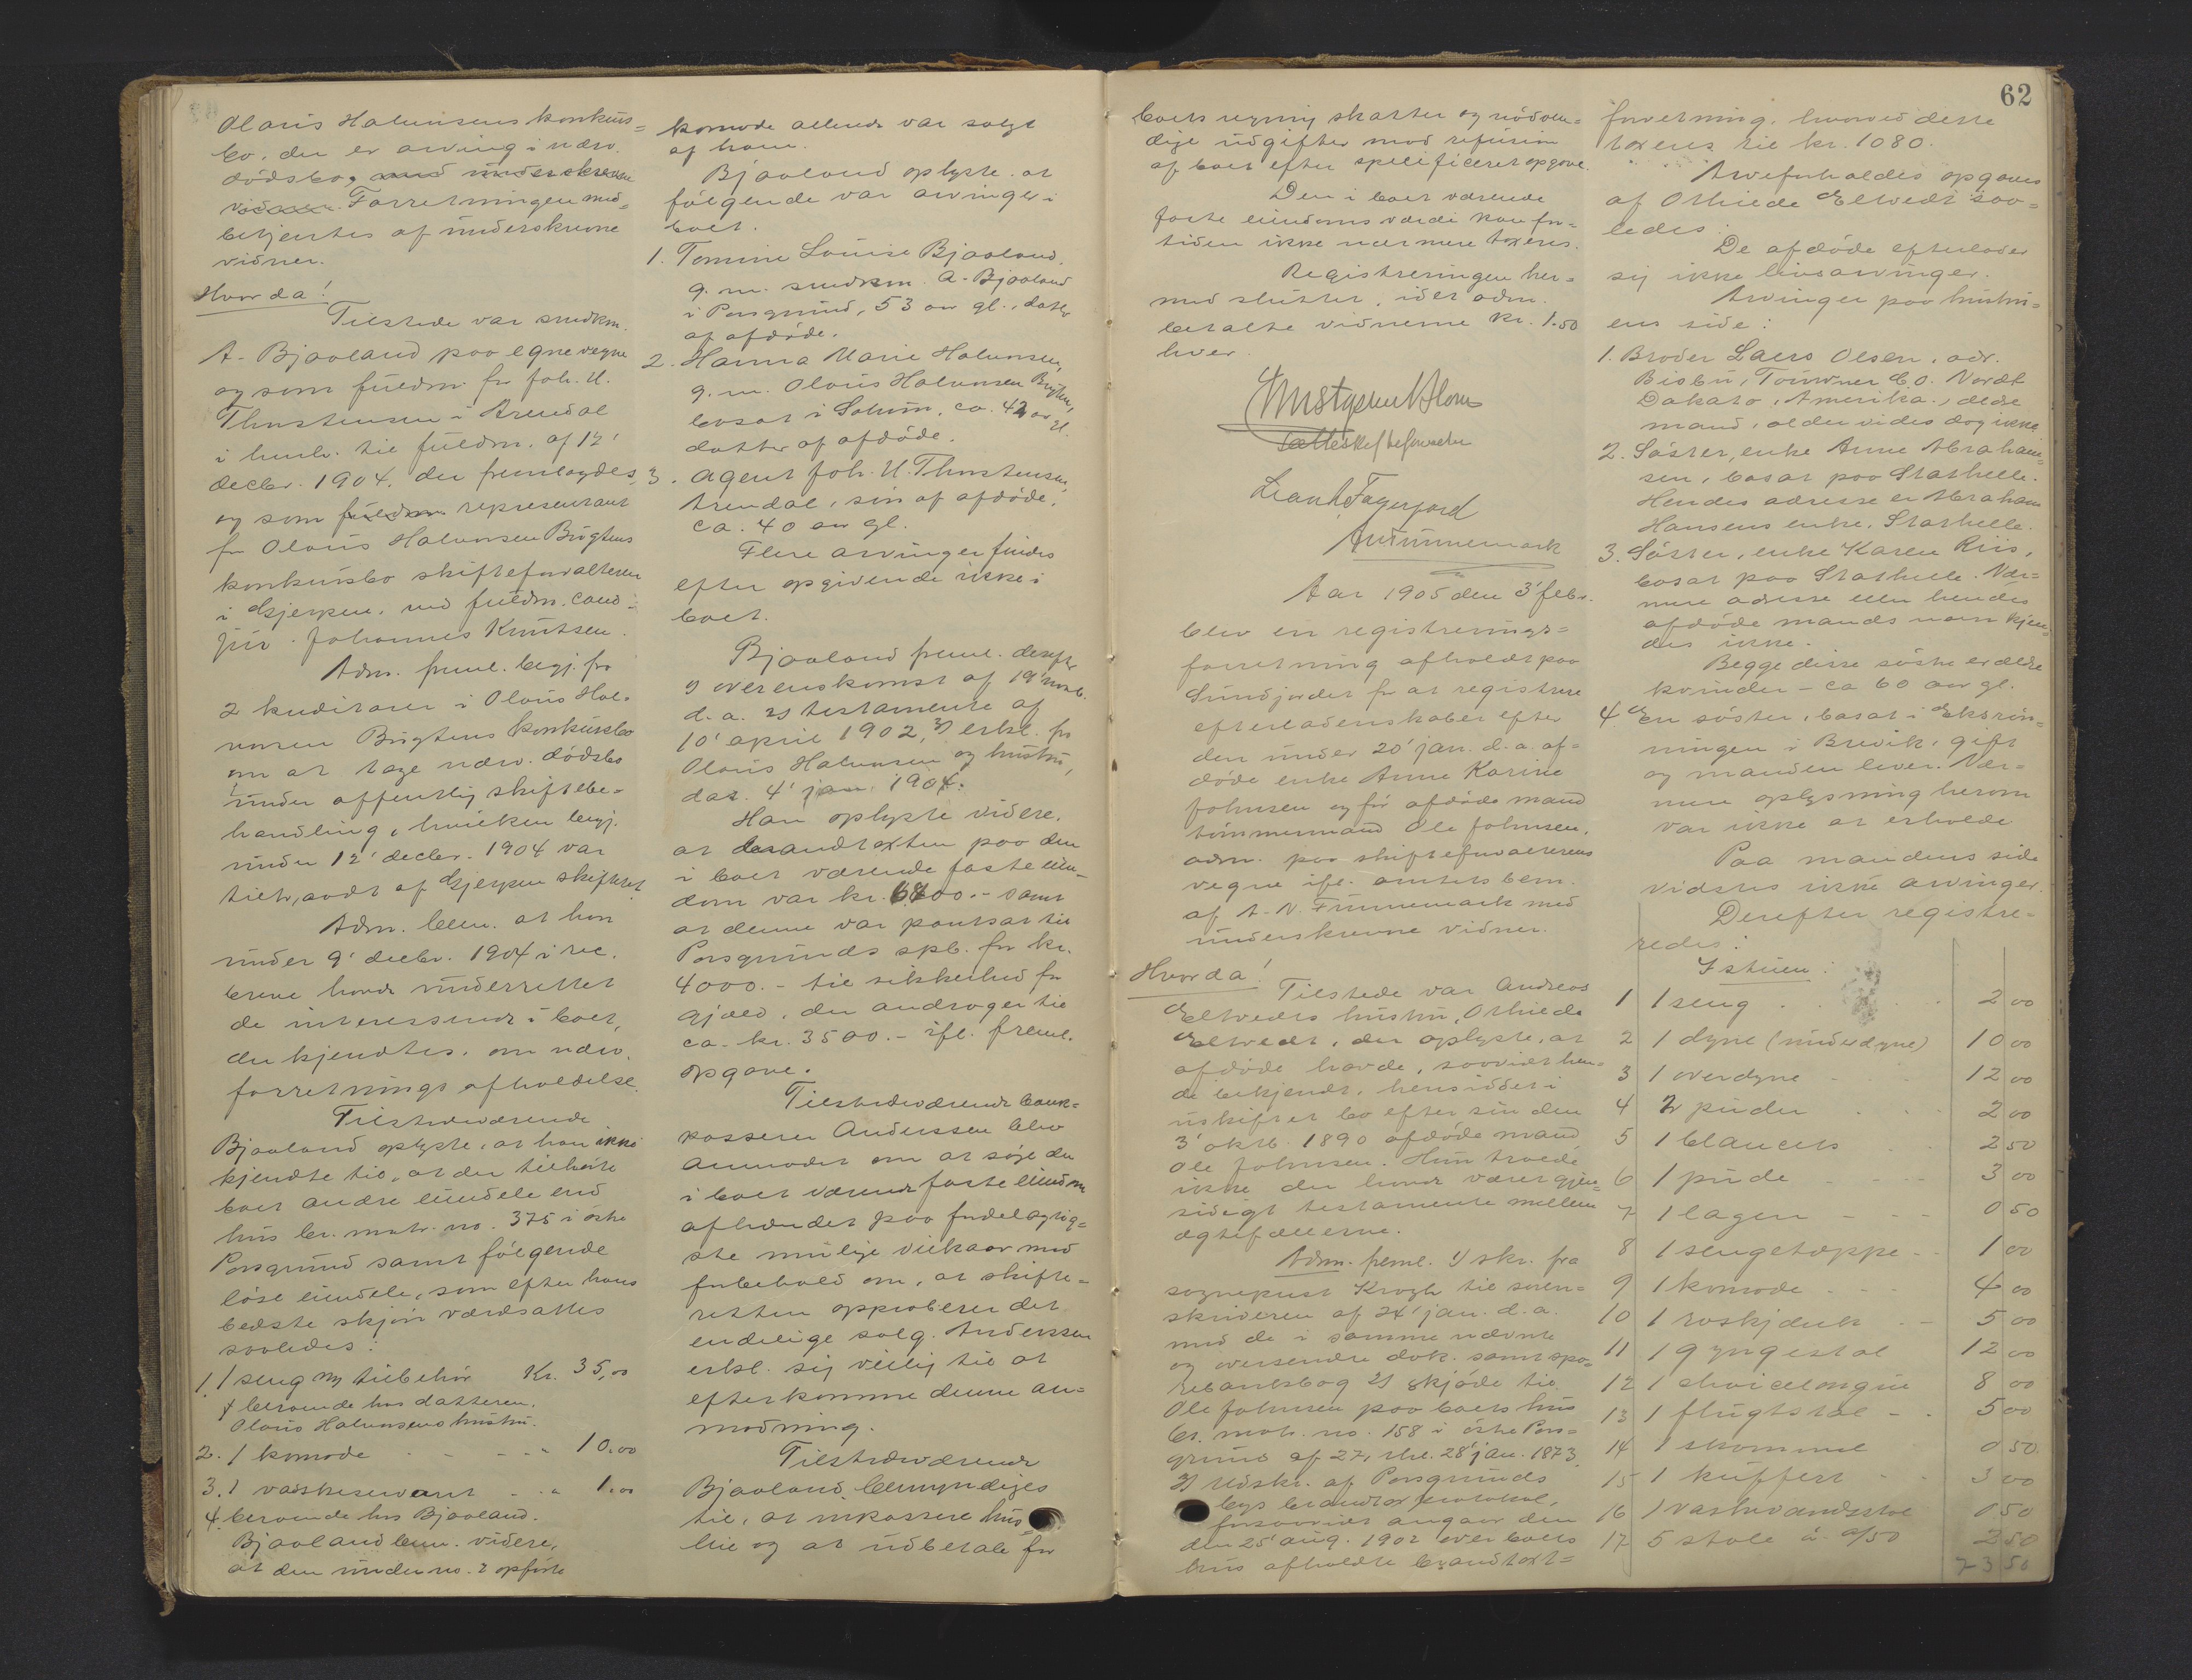 Olaus Halvorsens konkurs-
bo, der er arving i nærv.
dødsbo, med underskrevne
vidner. Forretningen med-
betjentes af underskrevne
vidner.
Hvorda!
Tilstede var snedkm.
A. Bjaaland paa egne vegne
og som fuldm. for Joh. U.
Thorstensen i Arendal
i henh. til fuldm. af 12'
decbr. 1904, der fremlagdes,
og som fuldm. repræsentant
for Olaus Halvorsen Brugtens
konkursbo skifteforvalteren
i Gjerpen, ved fuldm. cand.
jur. Johannes Knutsen.
Adm. freml. begj. fra
2 kreditorer i Olaus Hal-
vorsen Brugtens konkursbo
om at tage nærv. dødsbo
under offentlig skiftebe-
handling, hvilken begj.
under 12' decbr. 1904 var
af Gjerpen skifteret.
Adm. bem. at han
under 9' decbr. 1904 i rec.
breve havde underrettet
de interesserede i boet,
der kjendtes, om nærv.
forretnings afholdelse.
Tilstedeværende
Bjaaland oplyste, at han ikke
kjendte til, at der tilhørte
boet andre eiendele end
hus br. matr. no. 375 i østre
Porsgrund samt følgende
løse eiendele, som efter hans
bedste skjøn værdsattes
saaledes:
1. 1 seng m/ tilbehør Kr. 35,00
beroende hos datteren,
Olaus Halvorsens hustru.
2. 1 komode - - - " 10.00
3. 1 vaskeservant - - " 1.00
4. beroende hos Bjaaland.
Bjaaland bem. videre,
at den under no. 2 opførte
komode allerede var solgt
af ham.
Bjaaland oplyste at
følgende var arvinger i
boet.
1. Tomine Louise Bjaaland,
g. m. snedkm. A. Bjaaland
i Porsgrund, 53 aar gl., datter
af afdøde.
2. Hanna Marie Halvorsen,
g. m. Olaus Halvorsen Brugten,
bosat i Solum, ca. 42 aar gl.
datter af afdøde.
3. Agent Joh. U. Thorstensen,
Arendal, søn af afdøde,
ca. 40 aar gl.
Flere arvinger findes
efter opgivende ikke i
boet.
Bjaaland freml. derefter
1) overenskomst af 19' novb.
d. a. 2) testamente af
10' april 1902, 3) erkl. fra
Olaus Halvorsen og hustru,
dat. 4' jan. 1904.
Han oplyste videre,
at brandtaxten paa den
i boet værende faste eien-
dom var kr. 6800.- samt
at denne var pantsat til
Porsgrunds spb. for kr.
4000.- til sikkerhed for
gjæld, der androger til
ca. kr. 3500.- ifl. freml.
opgave.
Tilstedeværende bank-
kasserer Anderssen blev
anmodet om at søge den
i boet værende faste eiendom
afhændet paa fordelagtig-
ste mulige vilkaar med
forbehold om, at skifte-
retten approberer det
endelige salg. Anderssen
erkl. sig villig til at
efterkomme denne an-
modning.
Tilstedeværende
Bjaaland bemyndiges
til, at inkassere hus-
leie og at udbetale for
62
boets regning skatter og nødven-
dige udgifter mod refusion
af boet efter specificeret opgave.
Den i boet værende
faste eiendoms værdi kan for-
tiden ikke nærmere taxeres.
Registreringen her-
med sluttet, idet adm.
betalte vidnerne kr. 1.50
hver.
Aar 1905 den 3' febr.
blev en registrerings-
forretning afholdt paa
Sundjordet for at registrere
efterladenskaber efter
den under 20' jan. d. a. af-
døde enke Anne Karine
Johnsen og før afdøde mand
tømmermand Ole Johnsen,
adm. paa skifteforvalterens
vegne ifl. amtets bem.
af A. N. Finnemark med
underskrevne vidner.
Hvorda!
Tilstede var Andreas
Eltvedts hustru, Othilde
Eltvedt, der oplyste, at
afdøde havde, saavidt hen-
de bekjendt, hensiddet i
uskiftet bo efter sin den
3' oktb. 1890 afdøde mand
Ole Johnsen. Hun troede
ikke der havde været gjen-
sidigt testamente mellem
ægtefællerne.
Adm. freml. 1) skr. fra
sogneprest Krogh til soren-
skriveren af 24' jan. d. a.
med de i samme nævnte
og oversendte dok. samt spa-
rebanksbog 2) skjøde til
Ole Johnsen paa boets hus
br. matr. no. 158 i østre Pors-
grund af 27, thl. 28' jan. 1873,
3) Udskr. af Porsgrunds
bys brandtaxtprotokol,
forsaavidt angaar den
den 25' aug. 1902 over boets
hus afholdte brandtaxt-
forretning, hvorved dette
taxeres til kr. 1080.
Arveforholdet opgaves
af Othilde Eltvedt saa-
ledes:
De afdøde efterlader
sig ikke livsarvinger.
Arvinger paa hustru-
ens side:
1. Broder Laers Olsen, adr.
Bisbu, Touwner C.O. Nordt
Dakato, Amerika, ældre
mand, alder vides dog ikke.
2. Søster, enke Anne Abraham-
sen, bosat paa Stathelle.
Hendes adresse er Abraham
Hansens enke, Stathelle.
3. Søster, enke Karen Riis,
bosat paa Stathelle. Nær-
mere adresse eller hendes
afdøde mands navn kjen-
des ikke.
Begge disse søstre er ældre
kvinder - ca 60 aar gl.
4 En søster, bosat i Ekstrøn-
ningen i Brevik, gift
og manden lever. Nær-
mere oplysning herom
var ikke at erholde
Paa mandens side
vidstes ikke arvinger.
Derefter registre-
redes:
I stuen:
1 1 seng - - - 2 00
2 1 dyne (underdyne) 10 00
3 1 overdyne - - - 12 00
4 2 puder - - - 2 00
5 1 blancets - - 2 50
6 1 pude - - - 3 00
7 1 lagen - - - 0 50
8 1 sengetæppe - - 1 00
9 1 komode - - - 4 00
10 1 roskjænk - - 5 00
11 1 gyngestol 12 00
12 1 chaicelongue 8 00
13 1 flugtstol - - 5 00
14 1 skammel 0 50
15 1 kuffert - - 3 00
16 1 vaskevandsstol 0 50
17 5 stole à 0/50 2 50
73 50